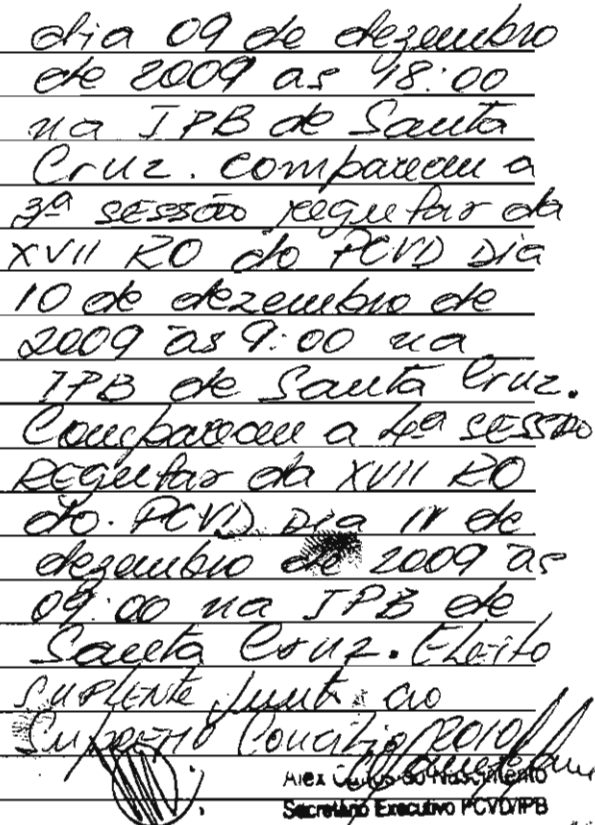 dia 09 de dezembro
de 2009 as 18:00
na IPB de Santa
Cruz. compareceu a
3ª sessão regular da
XVII RO do PCVD Dia
10 de dezembro de
2009 às 9:00 na
IPB de Santa Cruz.
Compareceu a 4ª sessão
Regular da XVII RO
do. PCVD Dia 11 de
dezembro de 2009 às
09:00 na IPB de
Santa Cruz. Eleito
suplente junto ao
Supremo Concílio 2010
Alex do Nascimento
Secretário Executivo PCVD/IPB